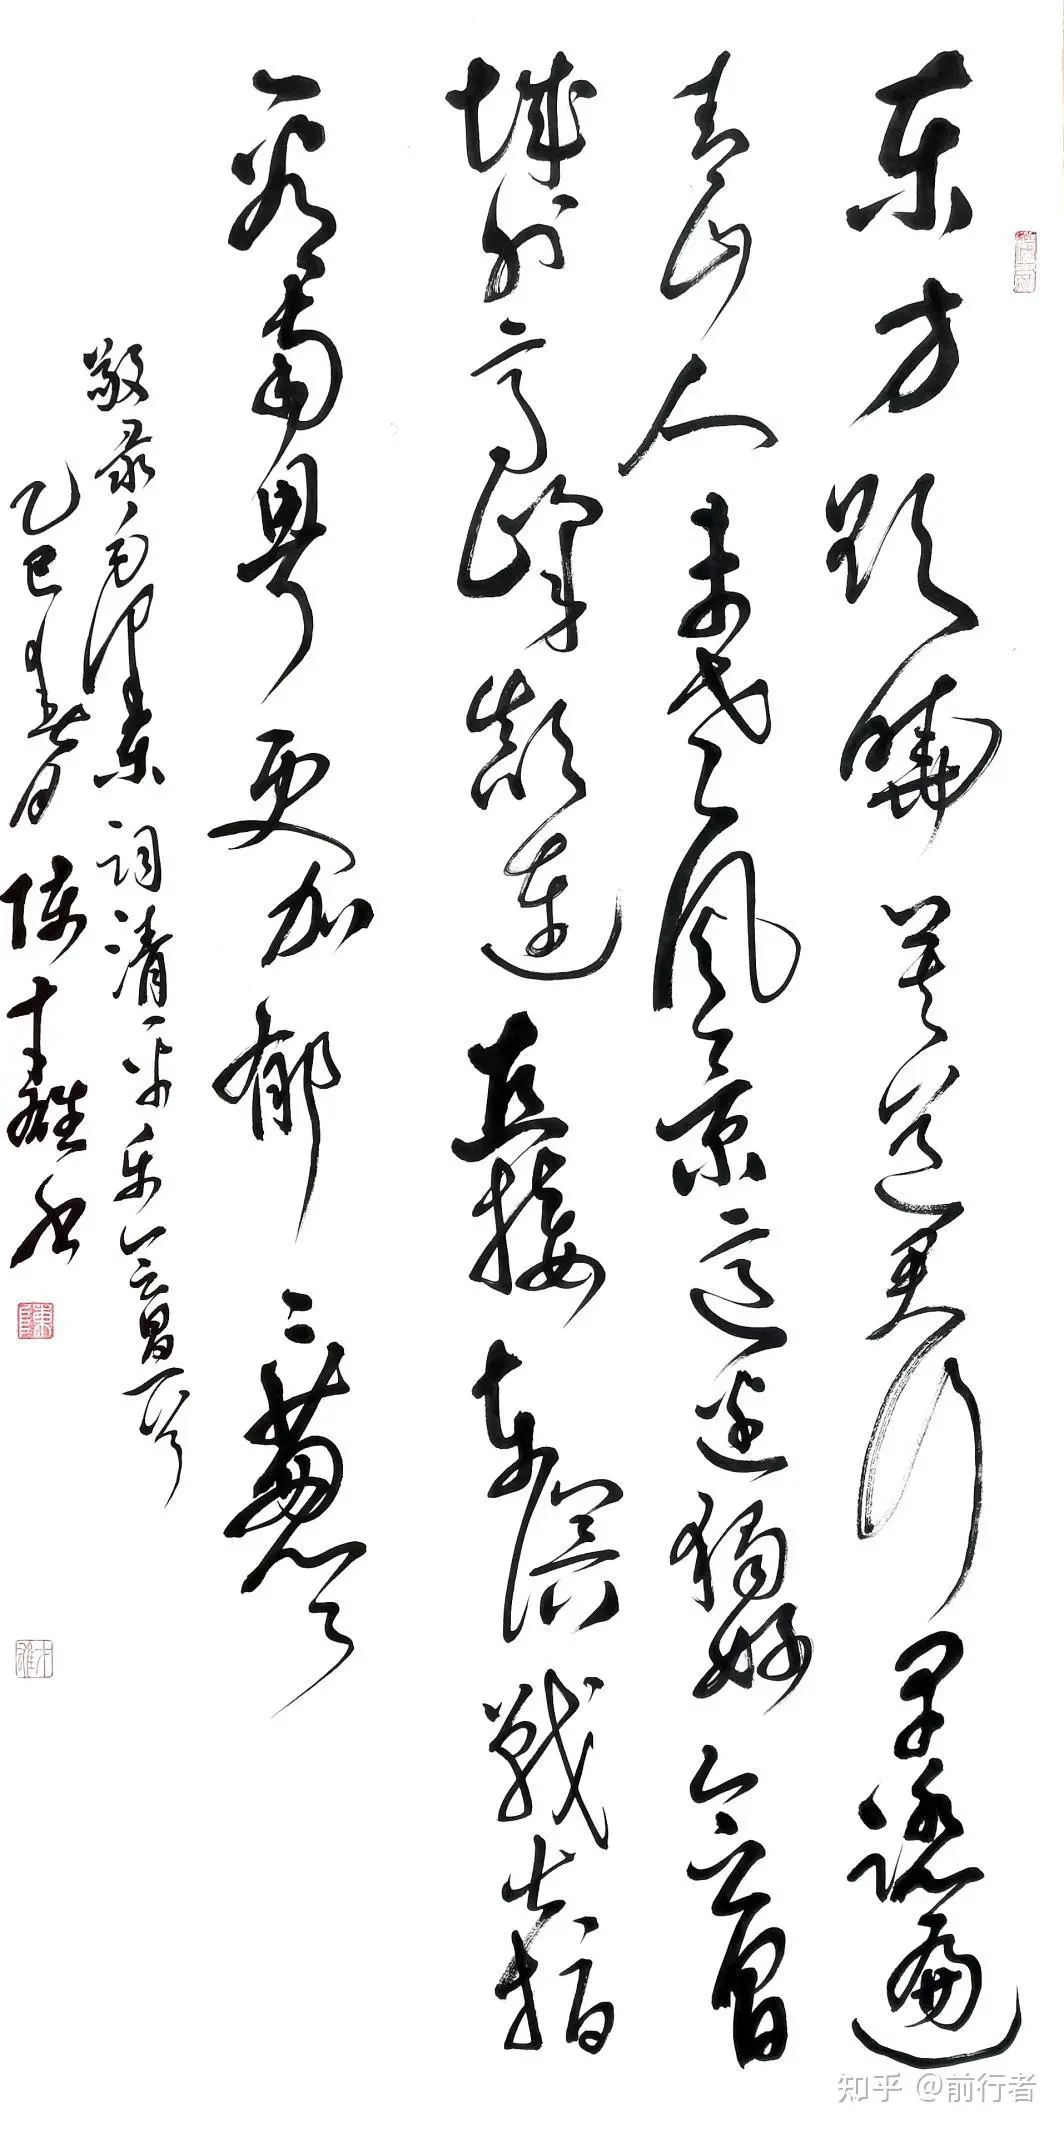 东方欲曉莫道君行早踏遍
青山人未老風景這边獨好会昌
城外高峰颠連直接东溟戰士指
看南粤更加郁〻葱〻
敬录毛泽东词清平乐会昌一首
乙巳春月 陈才雄书
知乎 @前行者